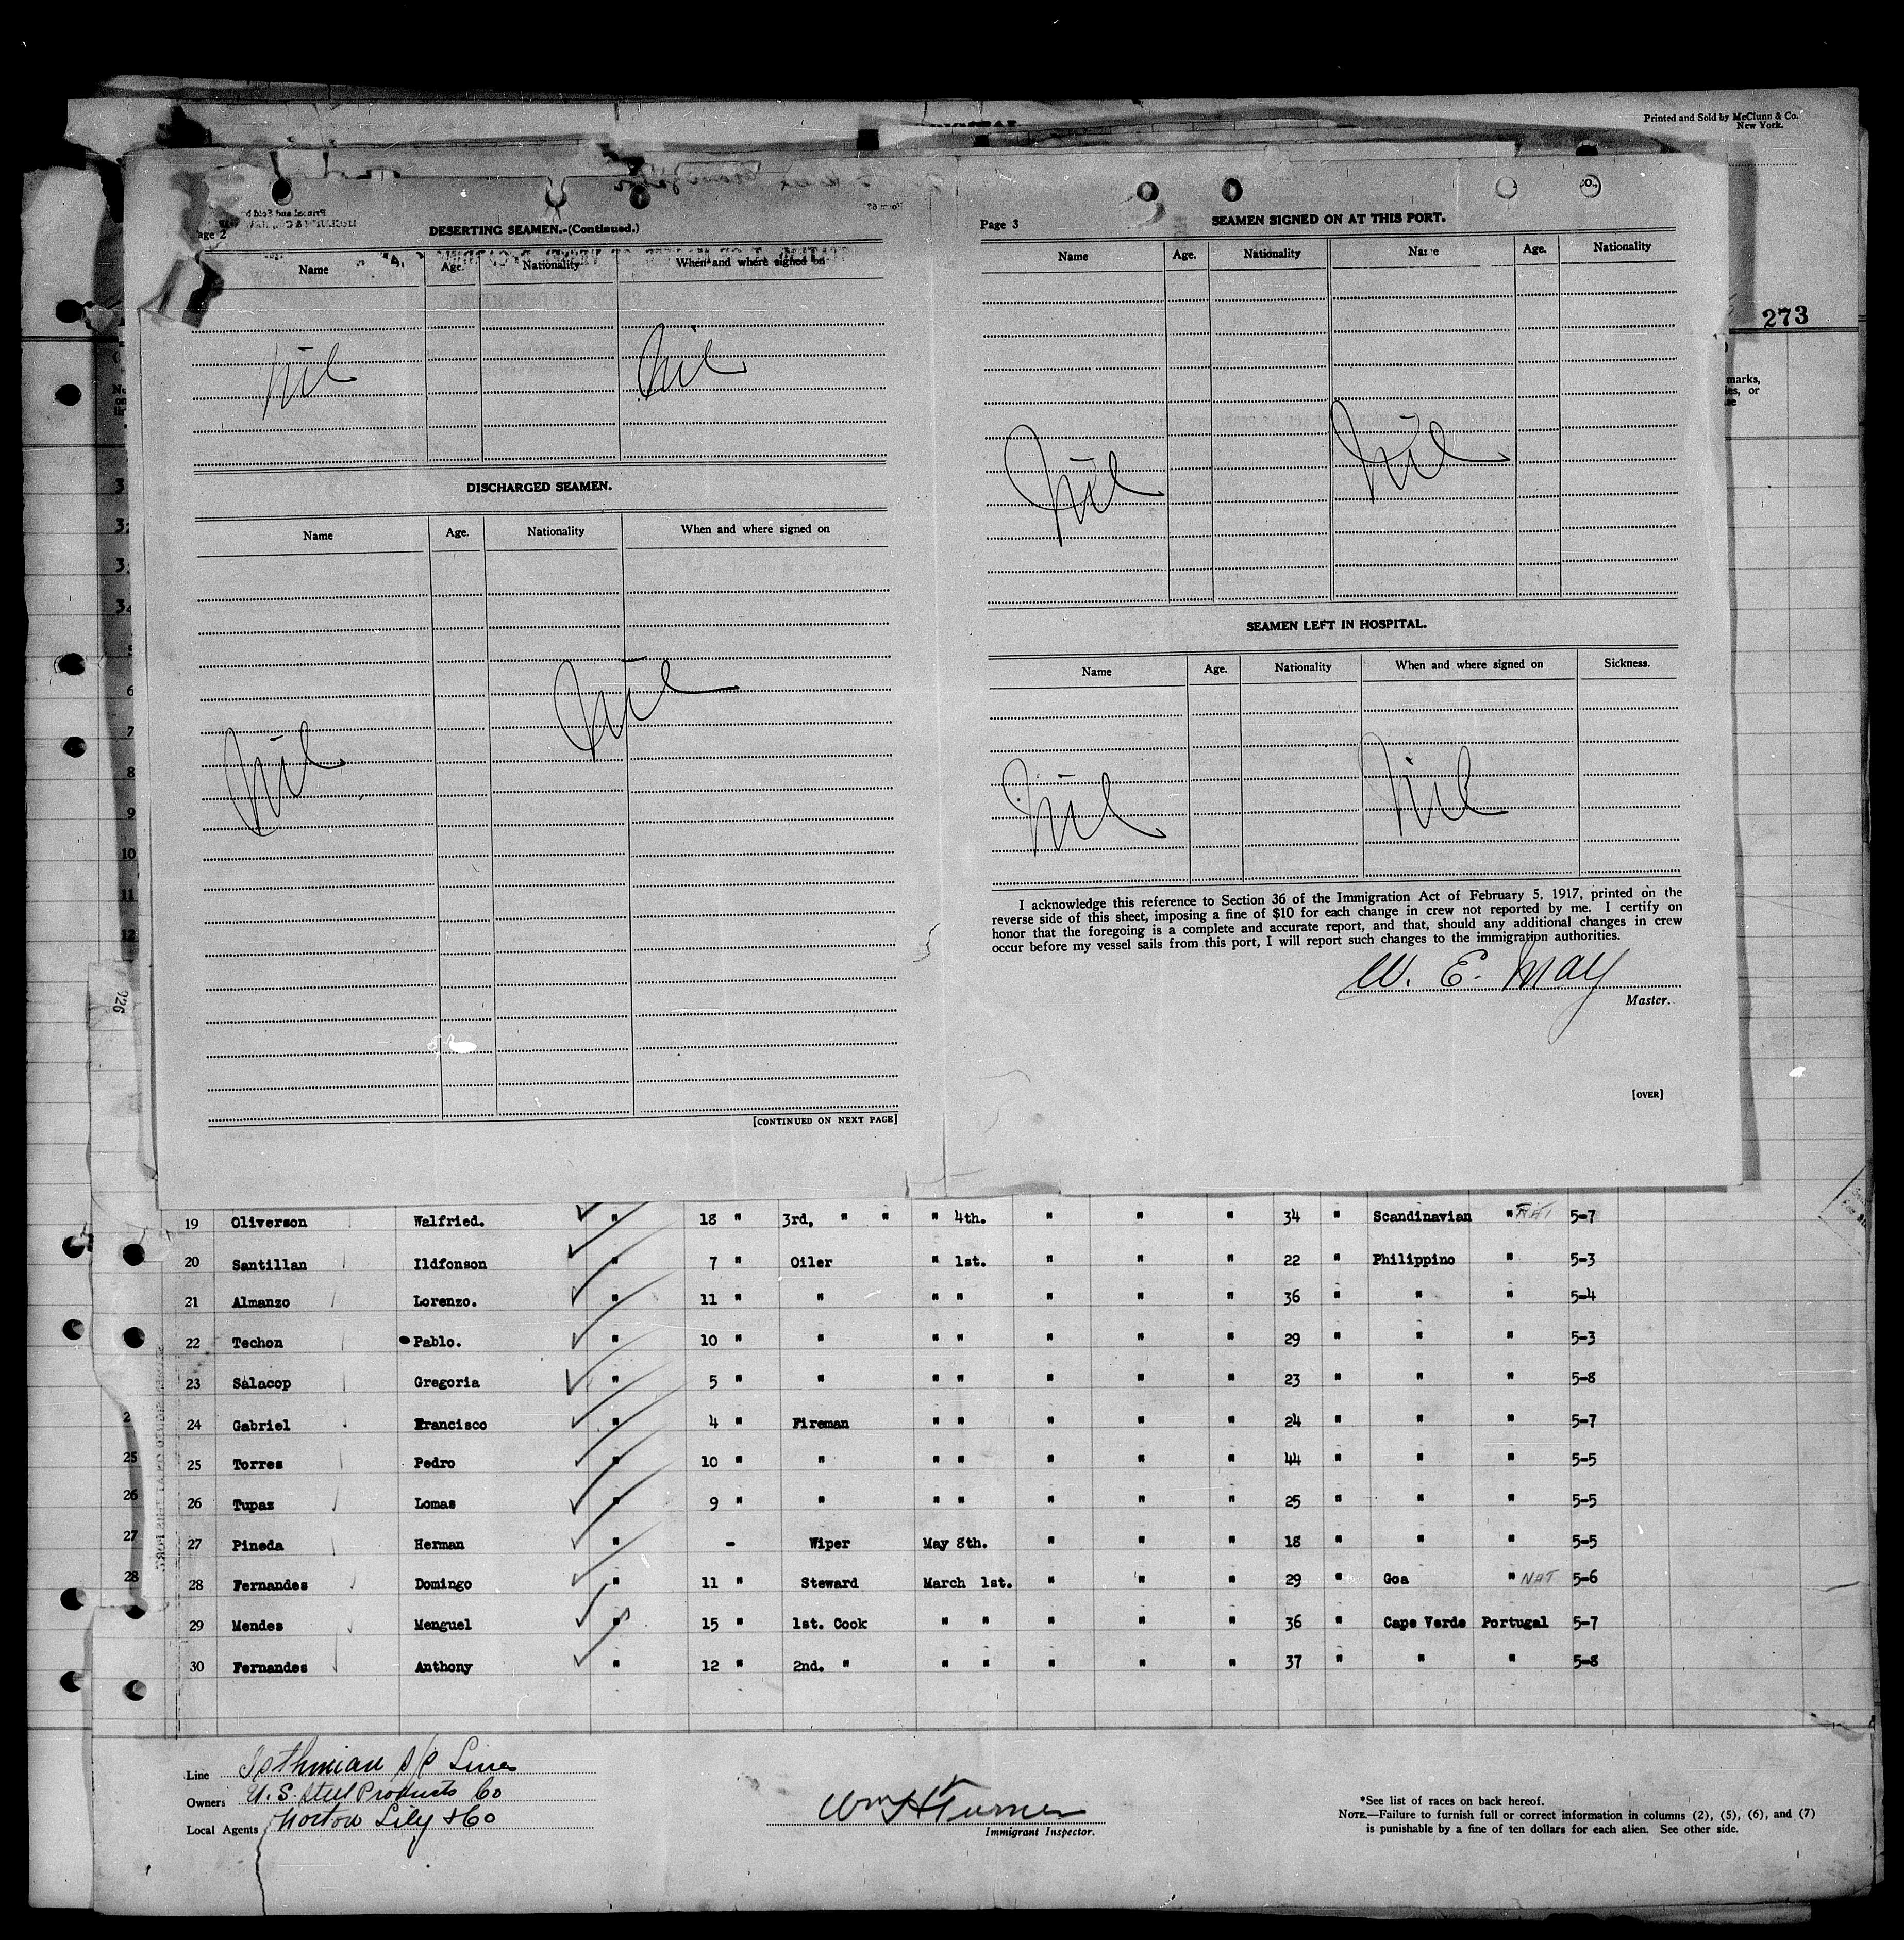 Printed and Sold by McClunn & Co.
New York.
273
Page 2
DESERTING SEAMEN.-(Continued.)
Name Age. Nationality When and where signed on
Nil Nil
DISCHARGED SEAMEN.
Name Age. Nationality When and where signed on
Nil
Nil
[CONTINUED ON NEXT PAGE]
Page 3
SEAMEN SIGNED ON AT THIS PORT.
Name Age. Nationality Name Age. Nationality
Nil Nil
SEAMEN LEFT IN HOSPITAL.
Name Age. Nationality When and where signed on Sickness.
Nil Nil
I acknowledge this reference to Section 36 of the Immigration Act of February 5, 1917, printed on the
reverse side of this sheet, imposing a fine of $10 for each change in crew not reported by me. I certify on
honor that the foregoing is a complete and accurate report, and that, should any additional changes in crew
occur before my vessel sails from this port, I will report such changes to the immigration authorities.
W. E. May
Master.
[OVER]
19 Oliverson Walfried. " 18 " 3rd, " " " 4th. " " " 34 " Scandinavian " NAT 5-7
20 Santillan Ildfonson " 7 " Oiler " 1st. " " " 22 " Philippino " 5-3
21 Almanzo Lorenzo. " 11 " " " " " " " 36 " " " 5-4
22 Techon Pablo. " 10 " " " " " " " 29 " " " 5-3
23 Salacop Gregoria " 5 " " " " " " " 23 " " " 5-8
24 Gabriel Francisco " 4 " Fireman " " " " " 24 " " " 5-7
25 Torres Pedro " 10 " " " " " " " 44 " " " 5-5
26 Tupaz Lomas " 9 " " " " " " " 25 " " " 5-5
27 Pineda Herman " - Wiper May 8th. " " " 18 " " " 5-5
28 Fernandes Domingo " 11 " Steward March 1st. " " " 29 " Goa " NAT 5-6
29 Mendes Menguel " 15 " 1st. Cook " " " " " 36 " Cape Verde Portugal 5-7
30 Fernandes Anthony " 12 " 2nd. " " " " " " 37 " " " 5-8
Line Isthmian S/S Lines
Owners U. S. Steel Products Co
Local Agents Norton Lily & Co
Wm H Turner
Immigrant Inspector.
*See list of races on back hereof.
NOTE.—Failure to furnish full or correct information in columns (2), (5), (6), and (7)
is punishable by a fine of ten dollars for each alien. See other side.